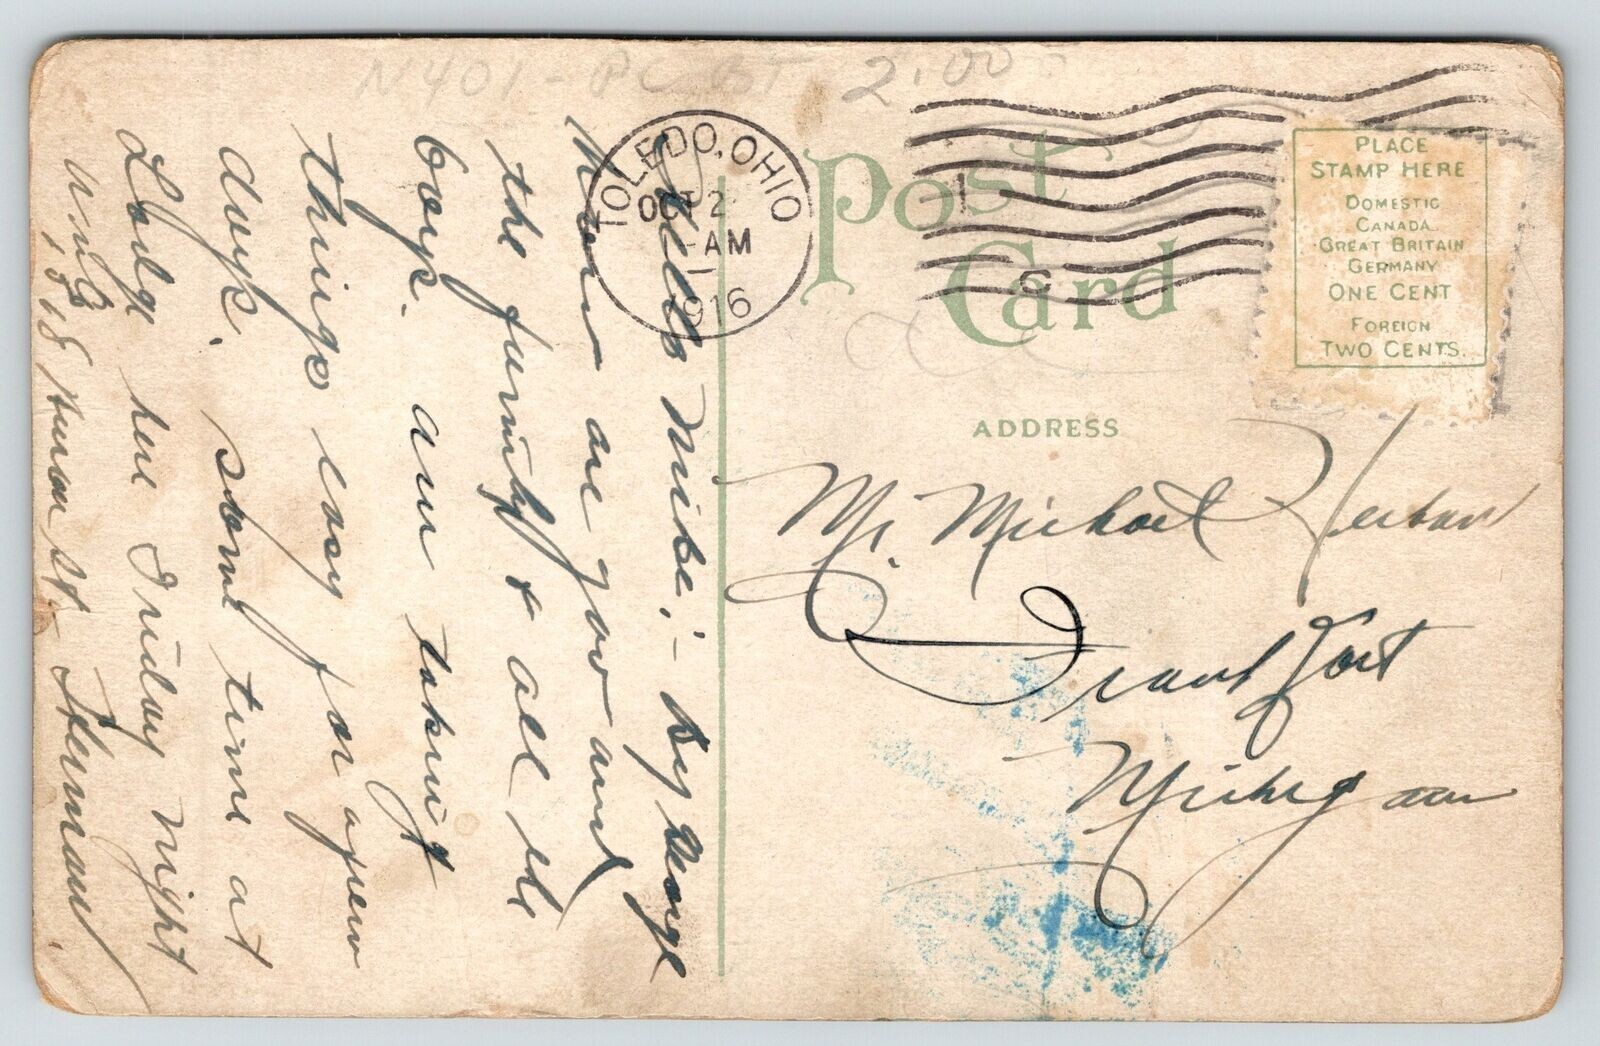 N401-PC 2.00
TOLEDO, OHIO
OCT 2
1-AM
1916
Post Card
PLACE
STAMP HERE
DOMESTIC
CANADA
GREAT BRITAIN
GERMANY
ONE CENT
FOREIGN
TWO CENTS.
ADDRESS
Mr. Michael
Frankfort
Michigan
Hello Mike;- By George
How are you and
the family & all the
boys. am taking
things easy for a few
days. some time at
Lodge here Friday night
1818 Huron St. Herman